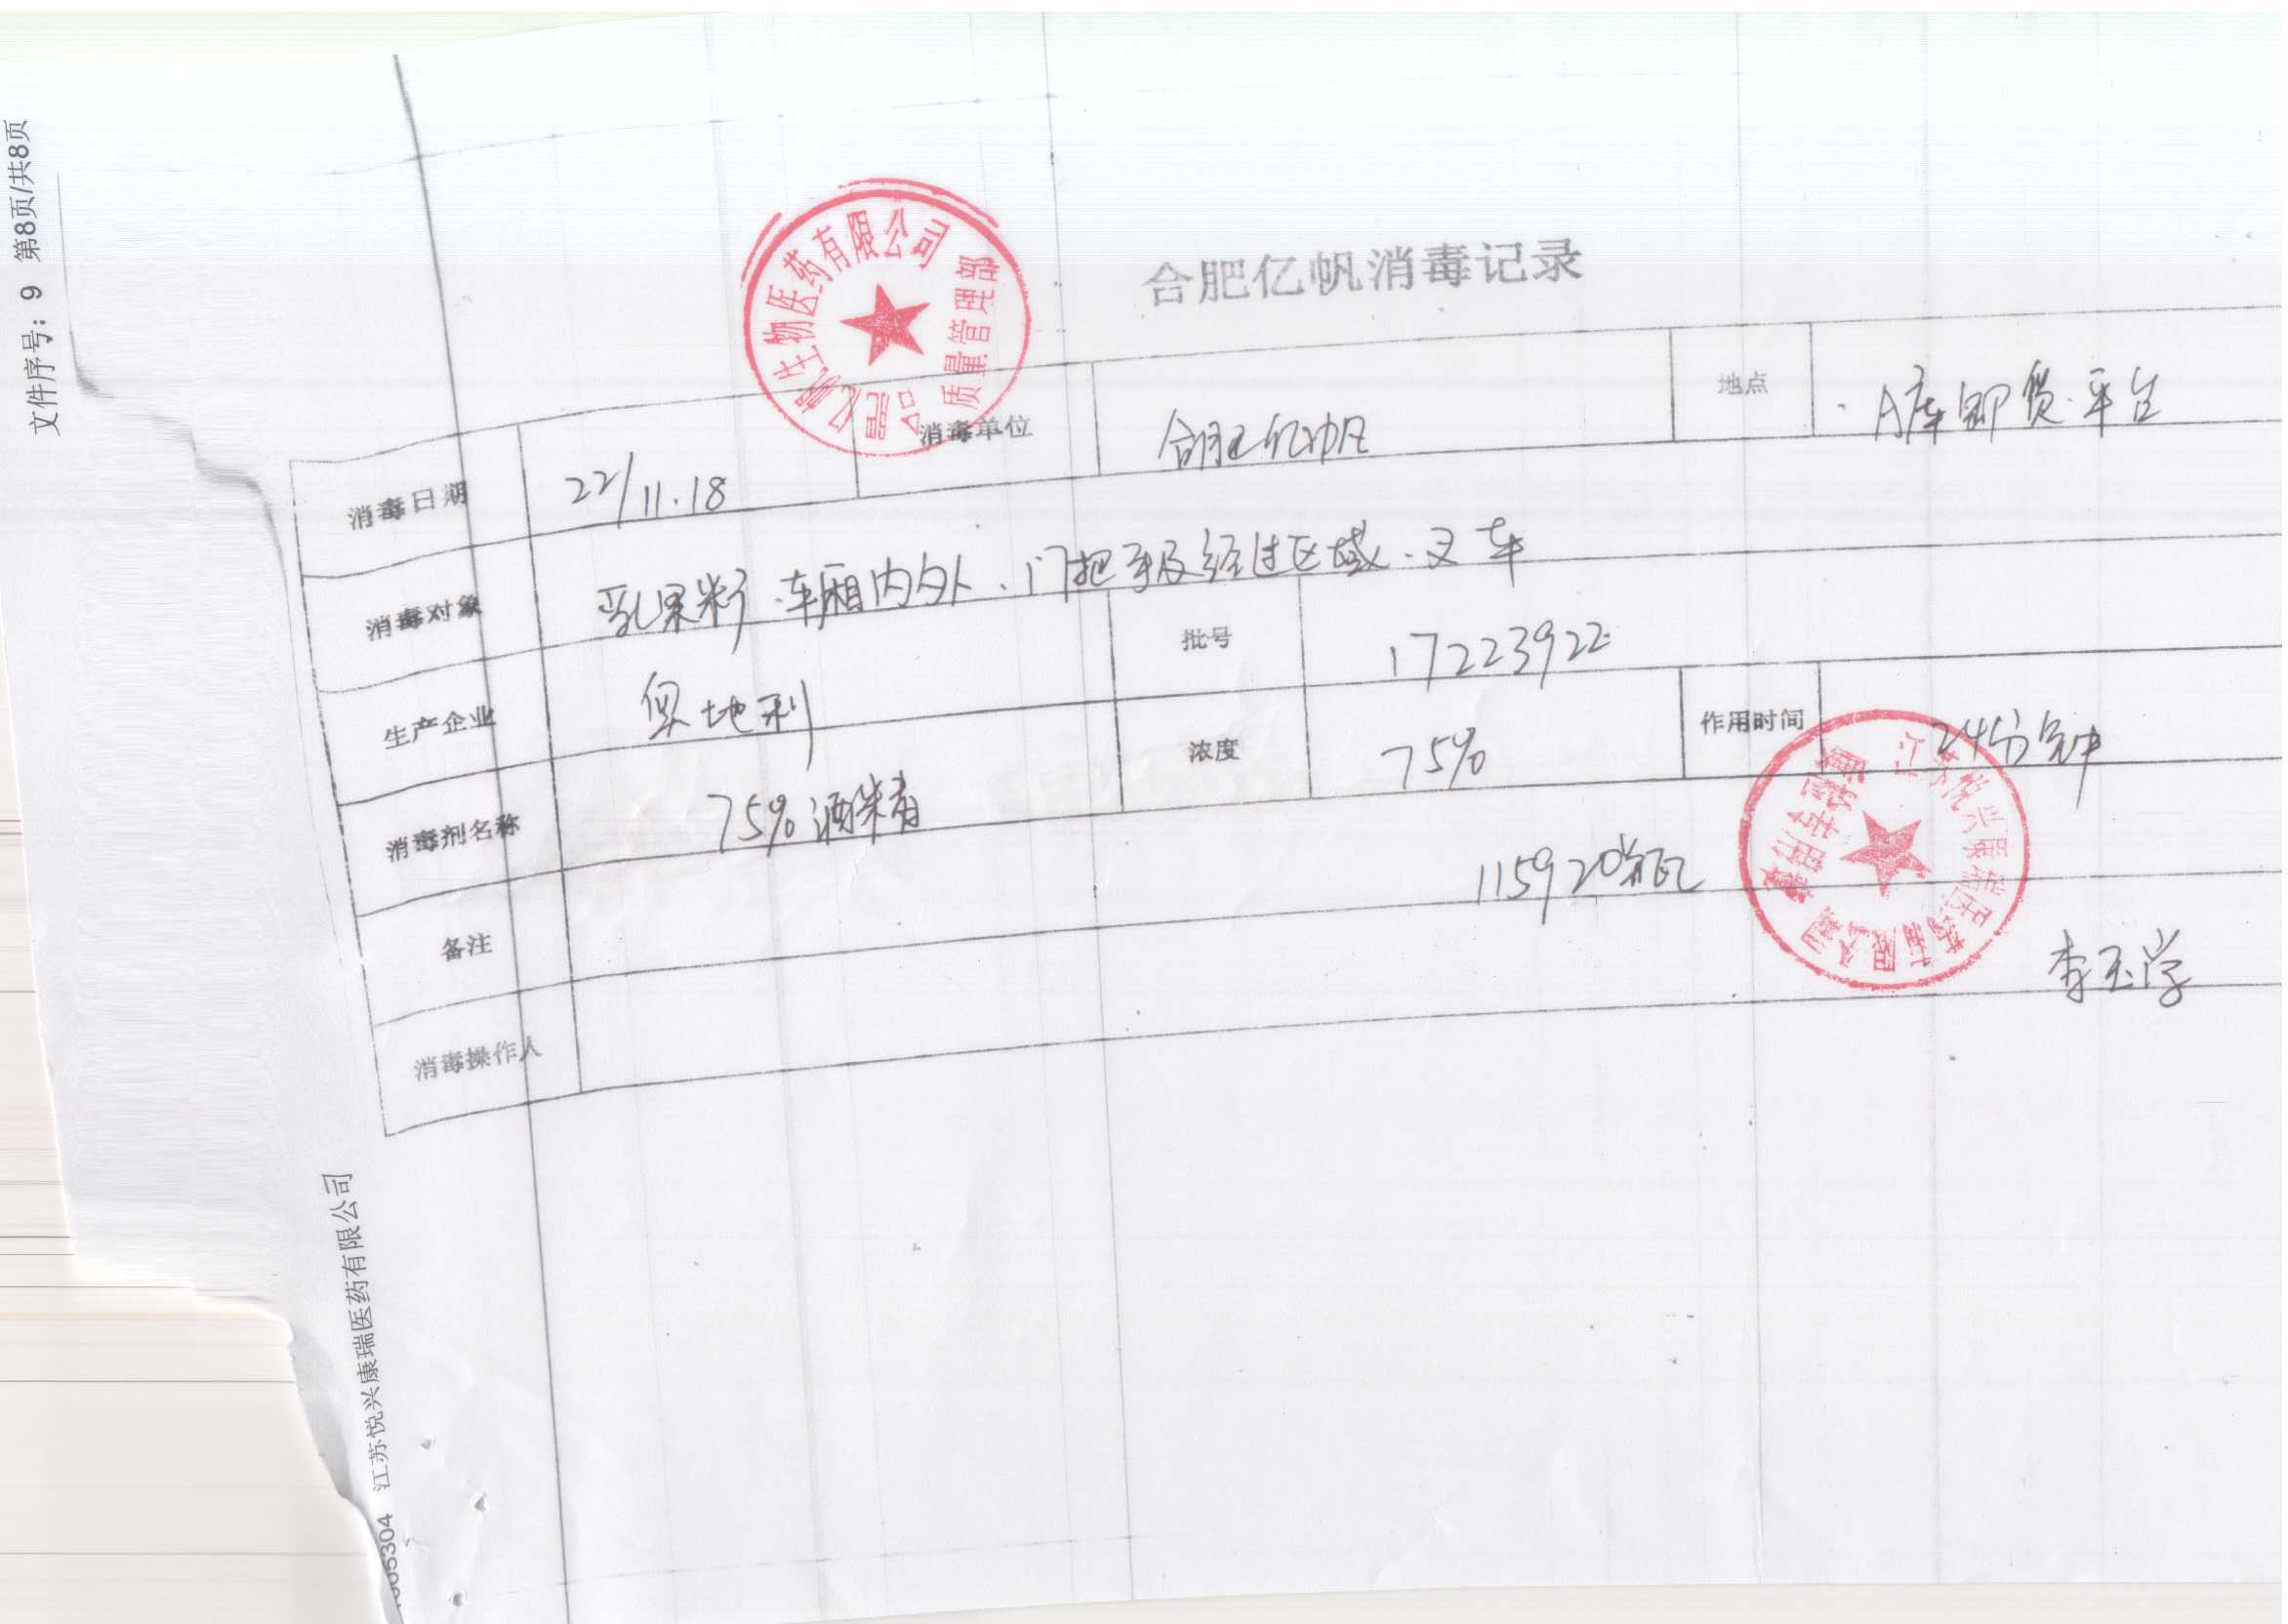 文件序号: 9 第8页/共8页
合肥亿帆生物医药有限公司
质量管理部
合肥亿帆消毒记录
消毒日期 22/11.18 消毒单位 合肥亿帆 地点 A库卸货平台
消毒对象 乳果粉.车厢内外.门把手及经过区域.叉车
生产企业 奥地利 批号 17223922
消毒剂名称 75%酒精 浓度 75% 作用时间 24分钟
备注 115920
消毒操作人 李玉学
江苏悦兴康瑞医药有限公司
005304 江苏悦兴康瑞医药有限公司